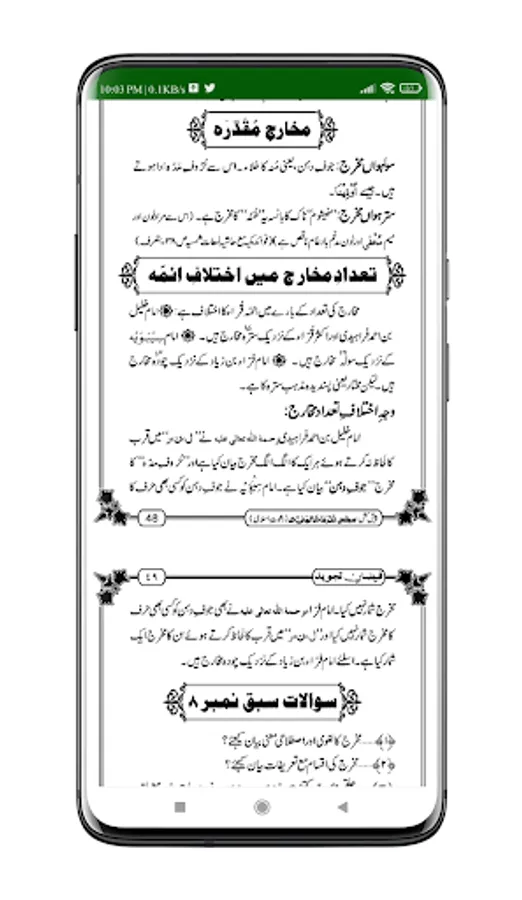 10:03 PM | 0.1KB/s
مخارج مُقَدَّرَہ
سولہواں مخرج: جوفِ دہن، یعنی منہ کا خلاء۔ اس سے حُروفِ مَدّہ ادا ہوتے
ہیں۔ جیسے اُوْتِیْنَا۔
سترہواں مخرج: "خیشوم" ناک کا بانسہ یہ "غُنّہ" کا مخرج ہے۔ (اس سے مراد نون اور
میم مُخْفٰی اور نون مدغم بادغام ناقص ہے)
تعدادِ مخارج میں اختلافِ ائمّہ
مخارج کی تعداد کے بارے میں ائمّہ قراء کا اختلاف ہے۔ امام خلیل
بن احمد فراہیدی اور اکثر قُراء کے نزدیک سترہ مخارج ہیں۔ امام سِیْبَوَیْہ
کے نزدیک سولہ مخارج ہیں۔ امام فرّاء بن زیاد کے نزدیک چودہ مخارج
ہیں۔ لیکن مختار یعنی پسندیدہ مذہب سترہ کا ہے۔
وجہِ اختلافِ تعدادِ مخارج:
امام خلیل بن احمد فراہیدی رحمۃ اللہ تعالیٰ علیہ نے "ل، ن، ر" میں قرب
کا لحاظ نہ کرتے ہوئے ہر ایک کا الگ الگ مخرج بیان کیا ہے اور "حُروفِ مدّہ" کا
مخرج "جوفِ دہن" بیان کیا ہے۔ امام سِیْبَوَیْہ نے جوفِ دہن کو کسی بھی حرف کا
48
٤٩
فیضانِ تجوید
مخرج شمار نہیں کیا۔ امام فرّاء رحمۃ اللہ تعالیٰ علیہ نے بھی جوفِ دہن کو کسی بھی حرف
کا مخرج شمار نہیں کیا اور "ل، ن، ر" میں قرب کا لحاظ کرتے ہوئے ان کا مخرج ایک
شمار کیا ہے۔ اسلئے امام فرّاء بن زیاد کے نزدیک چودہ مخارج ہیں۔
سوالات سبق نمبر ۸
﴿۱﴾.....مخرج کا لغوی اور اصطلاحی معنی بیان کیجئے؟
﴿۲﴾.....مخرج کی اقسام مع تعریفات بیان کیجئے؟